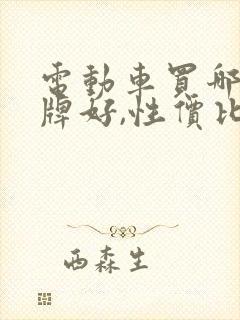 電動車買哪
牌好,性價比
西森生